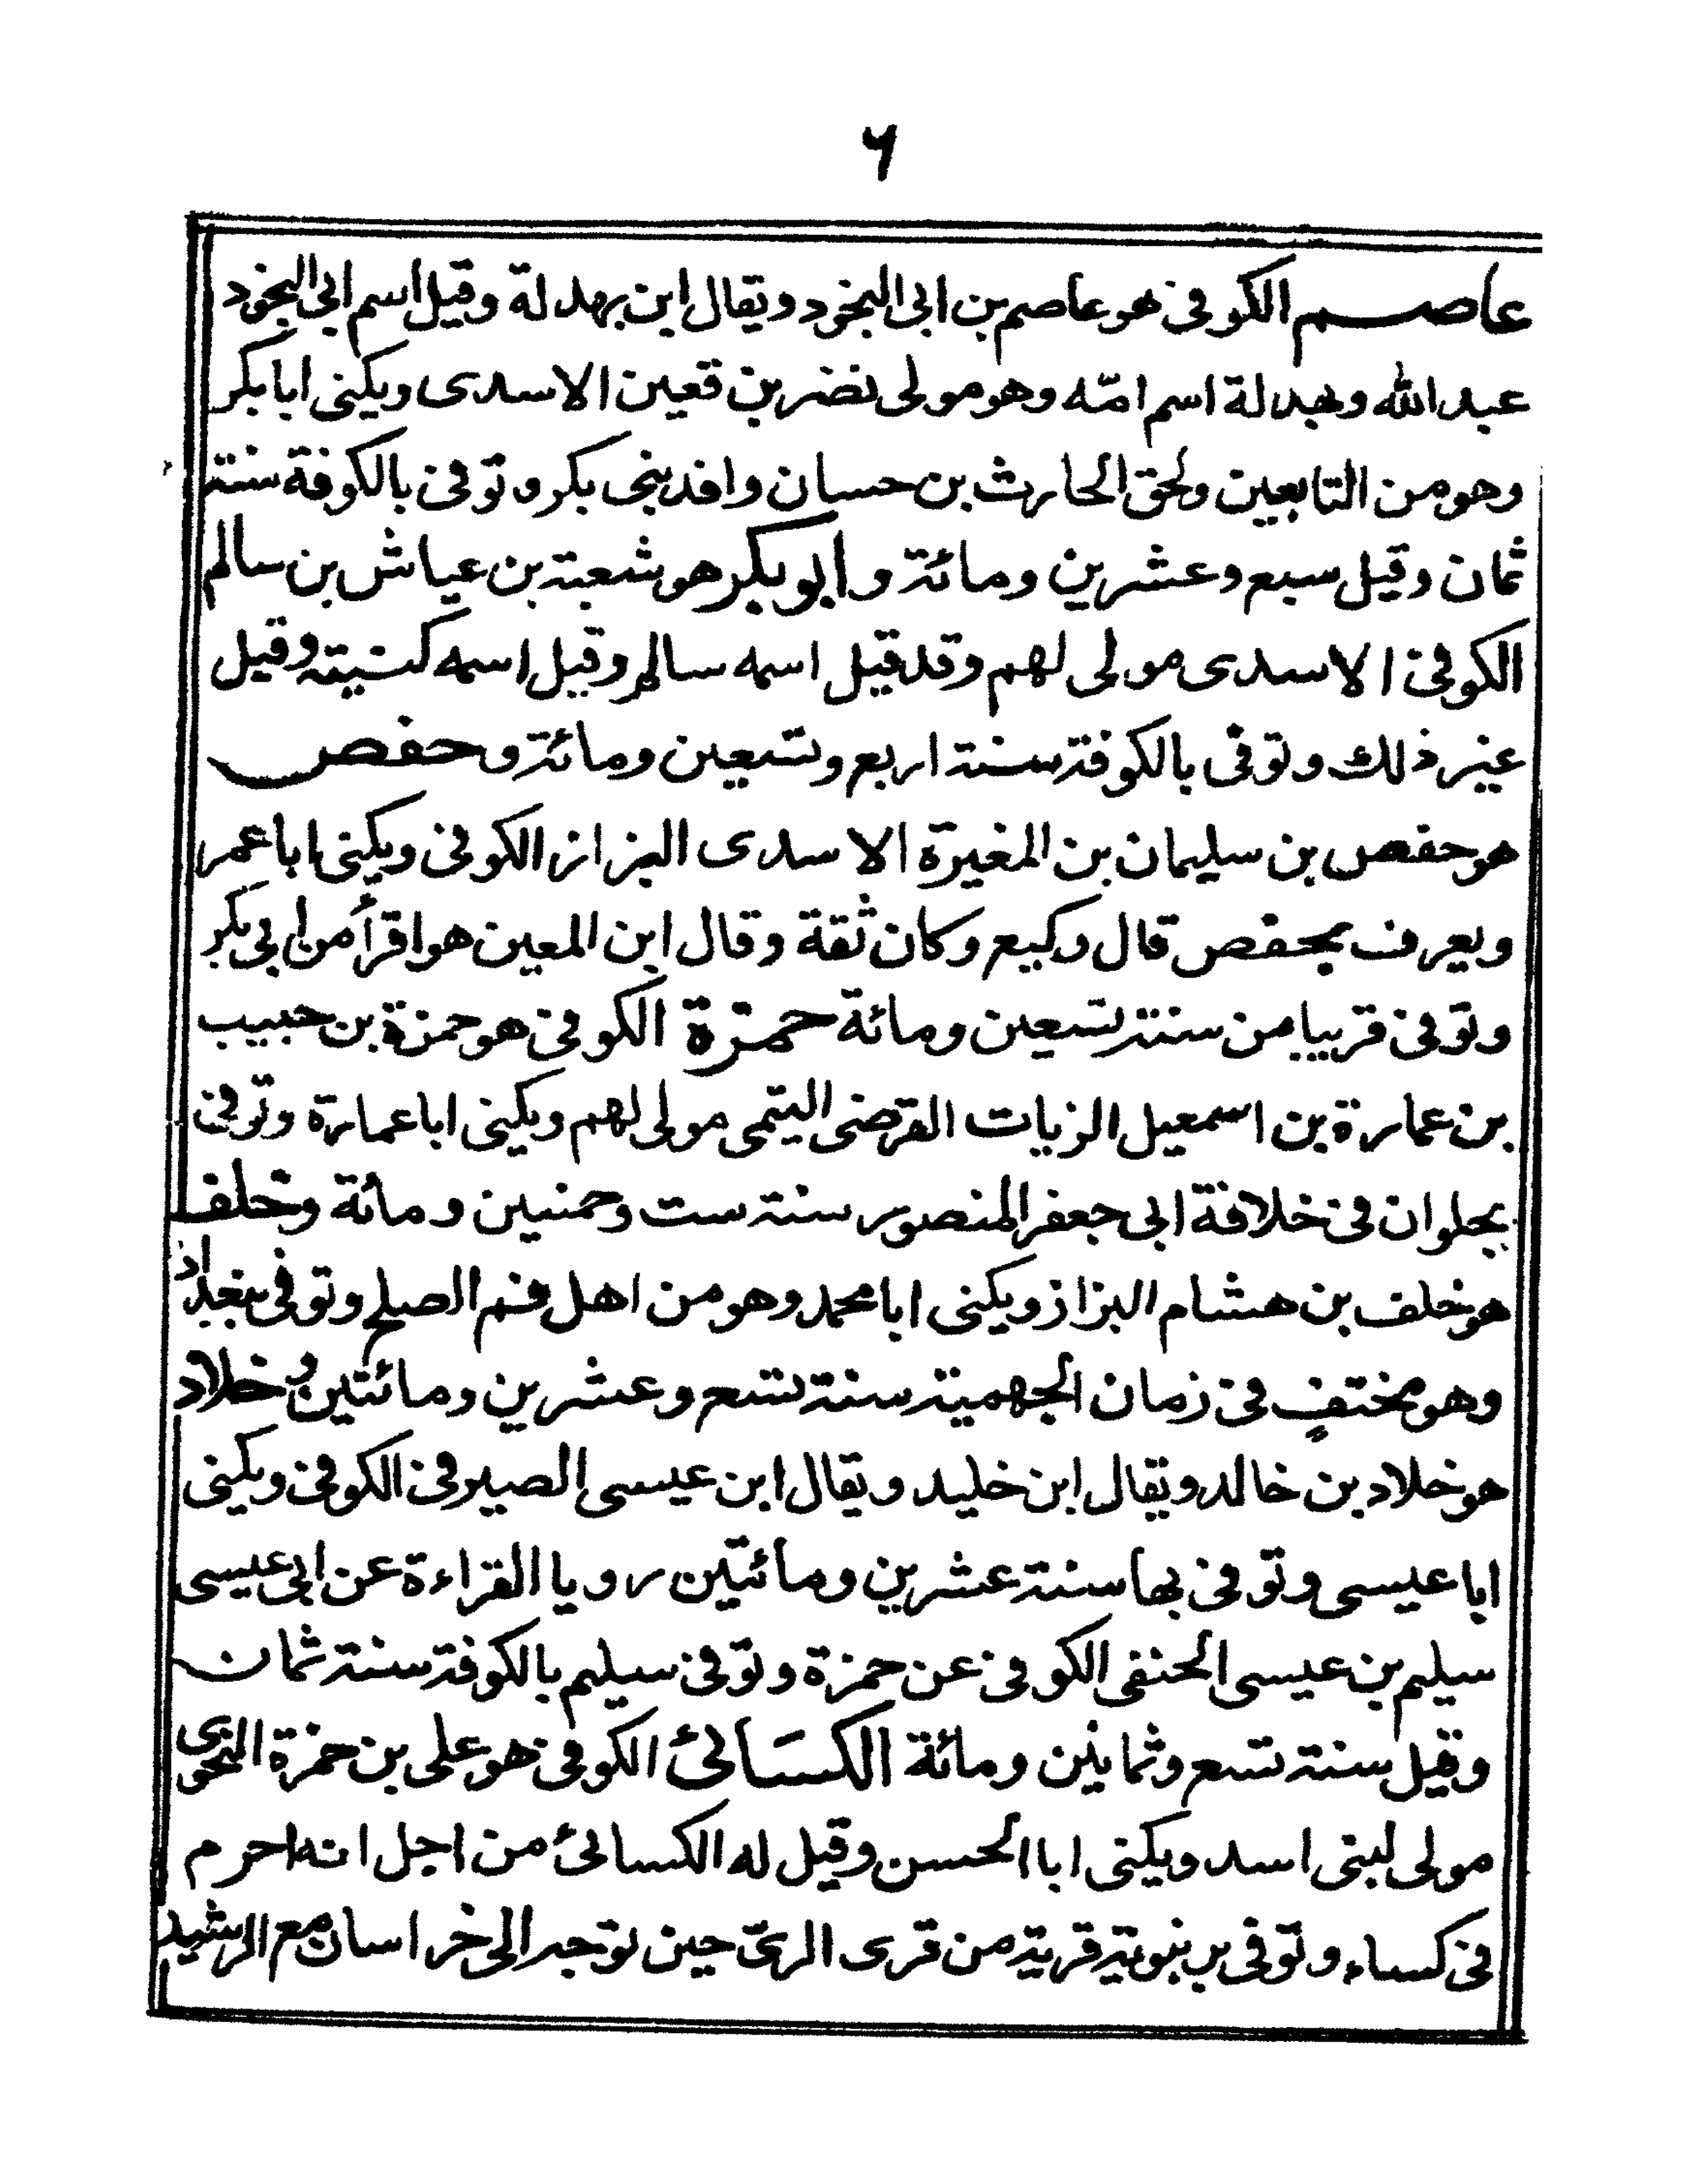 ۶
عاصم الكوفى هو عاصم بن ابى النجود ويقال ابن بهدلة وقيل اسم ابى النجود
عبد الله وبهدلة اسم امّه وهو مولى نضر بن قعين الاسدى ويكنى ابا بكر
وهو من التابعين ولحق الحارث بن حسان وافد بنى بكر وتوفى بالكوفة سنة
ثمان وقيل سبع وعشرين ومائة وابو بكر هو شعبة بن عياش بن سالم
الكوفى الاسدى مولى لهم وقد قيل اسمه سالم وقيل اسمه كنيته وقيل
غير ذلك وتوفى بالكوفة سنة اربع وتسعين ومائة وحفص
هو حفص بن سليمان بن المغيرة الاسدى البزاز الكوفى ويكنى ابا عمر
ويعرف بحفص قال وكيع وكان ثقة وقال ابن المعين هو اقرأ من ابى بكر
وتوفى قريبا من سنة تسعين ومائة حمزة الكوفى هو حمزة بن حبيب
بن عمارة بن اسمعيل الزيات الفرضى التيمى مولى لهم ويكنى ابا عمارة وتوفى
بحلوان فى خلافة ابى جعفر المنصور سنة ست وخمسين ومائة وخلف
هو خلف بن هشام البزاز ويكنى ابا محمد وهو من اهل فم الصلح وتوفى ببغداد
وهو مختفٍ فى زمان الجهمية سنة تسع وعشرين ومائتين وخلاد
هو خلاد بن خالد ويقال ابن خليد ويقال ابن عيسى الصيرفى الكوفى ويكنى
ابا عيسى وتوفى بها سنة عشرين ومائتين رويا القراءة عن ابى عيسى
سليم بن عيسى الحنفى الكوفى عن حمزة وتوفى سليم بالكوفة سنة ثمان
وقيل سنة تسع وثمانين ومائة الكسَائىُ الكوفى هو على بن حمزة النحوى
مولى لبنى اسد ويكنى ابا الحسن وقيل له الكسائىُ من اجل انه احرم
فى كساء وتوفى برنبوية قرية من قرى الرىّ حين توجه الى خراسان مع الرشيد